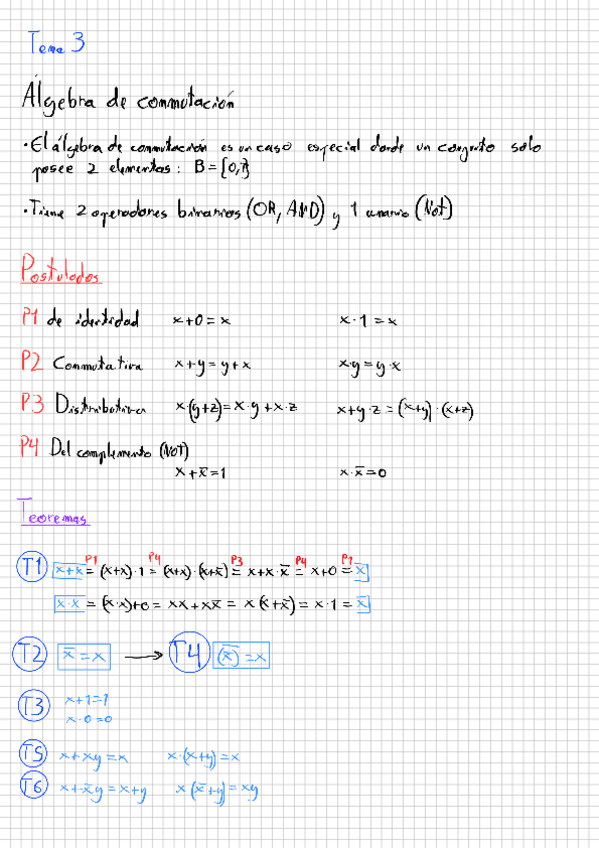 Tema 3
Álgebra de conmutación
· El álgebra de conmutación es un caso especial donde un conjunto solo
posee 2 elementos: B = {0,1}
· Tiene 2 operadores binarios (OR, AND) y 1 unario (Not)
Postulados
P1 de identidad x+0 = x x·1 = x
P2 Conmutativa x+y = y+x x·y = y·x
P3 Distributiva x·(y+z) = x·y + x·z x+y·z = (x+y)·(x+z)
P4 Del complemento (NOT)
x+x̅ = 1 x·x̅ = 0
Teoremas
P1 P4 P3 P4 P1
T1 x+x = (x+x)·1 = (x+x)·(x+x̅) = x+x·x̅ = x+0 = x
x·x = (x·x)+0 = xx+xx̅ = x(x+x̅) = x·1 = x
T2 x̅ = x → T4 (x̅)̅ = x
T3 x+1=1
x·0=0
T5 x+xy = x x·(x+y) = x
T6 x+x̅y = x+y x(x̅+y) = xy